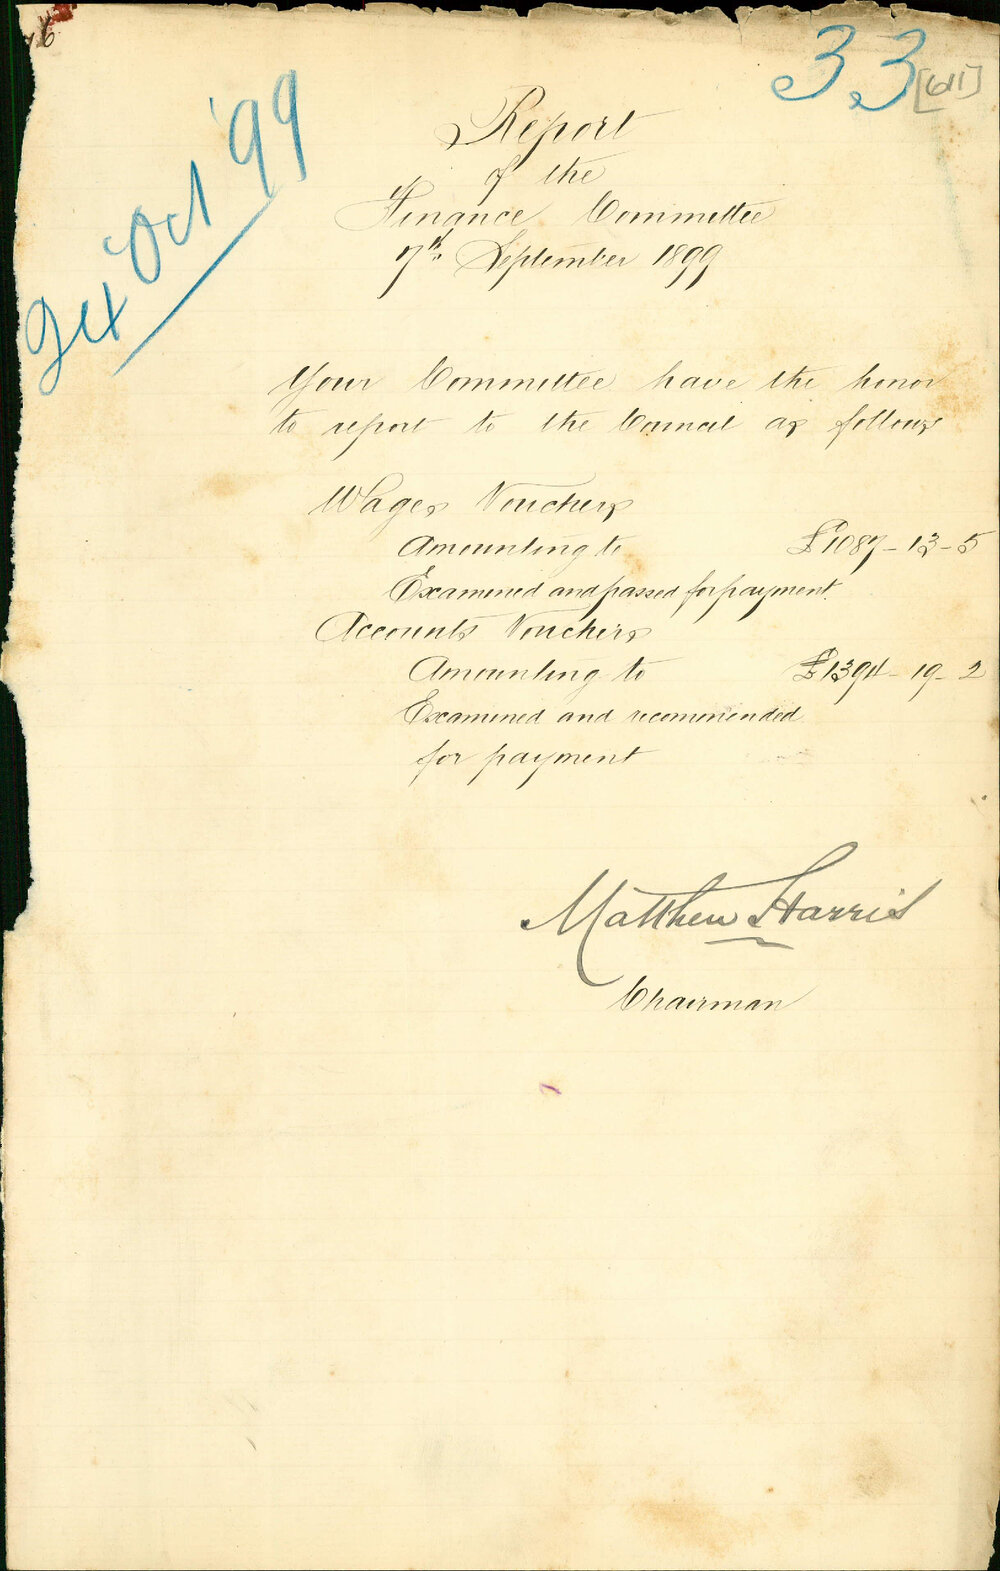 33
[611]
Oct '99
Report
of the
Finance Committee
7th. September 1899
Your Committee have the honor
to report to the Council as follows
Wages Vouchers
Amounting to £1087-13-5
Examined and passed for payment.
Accounts Vouchers
Amounting to £1394-19-2
Examined and recommended
for payment
Matthew Harris
Chairman